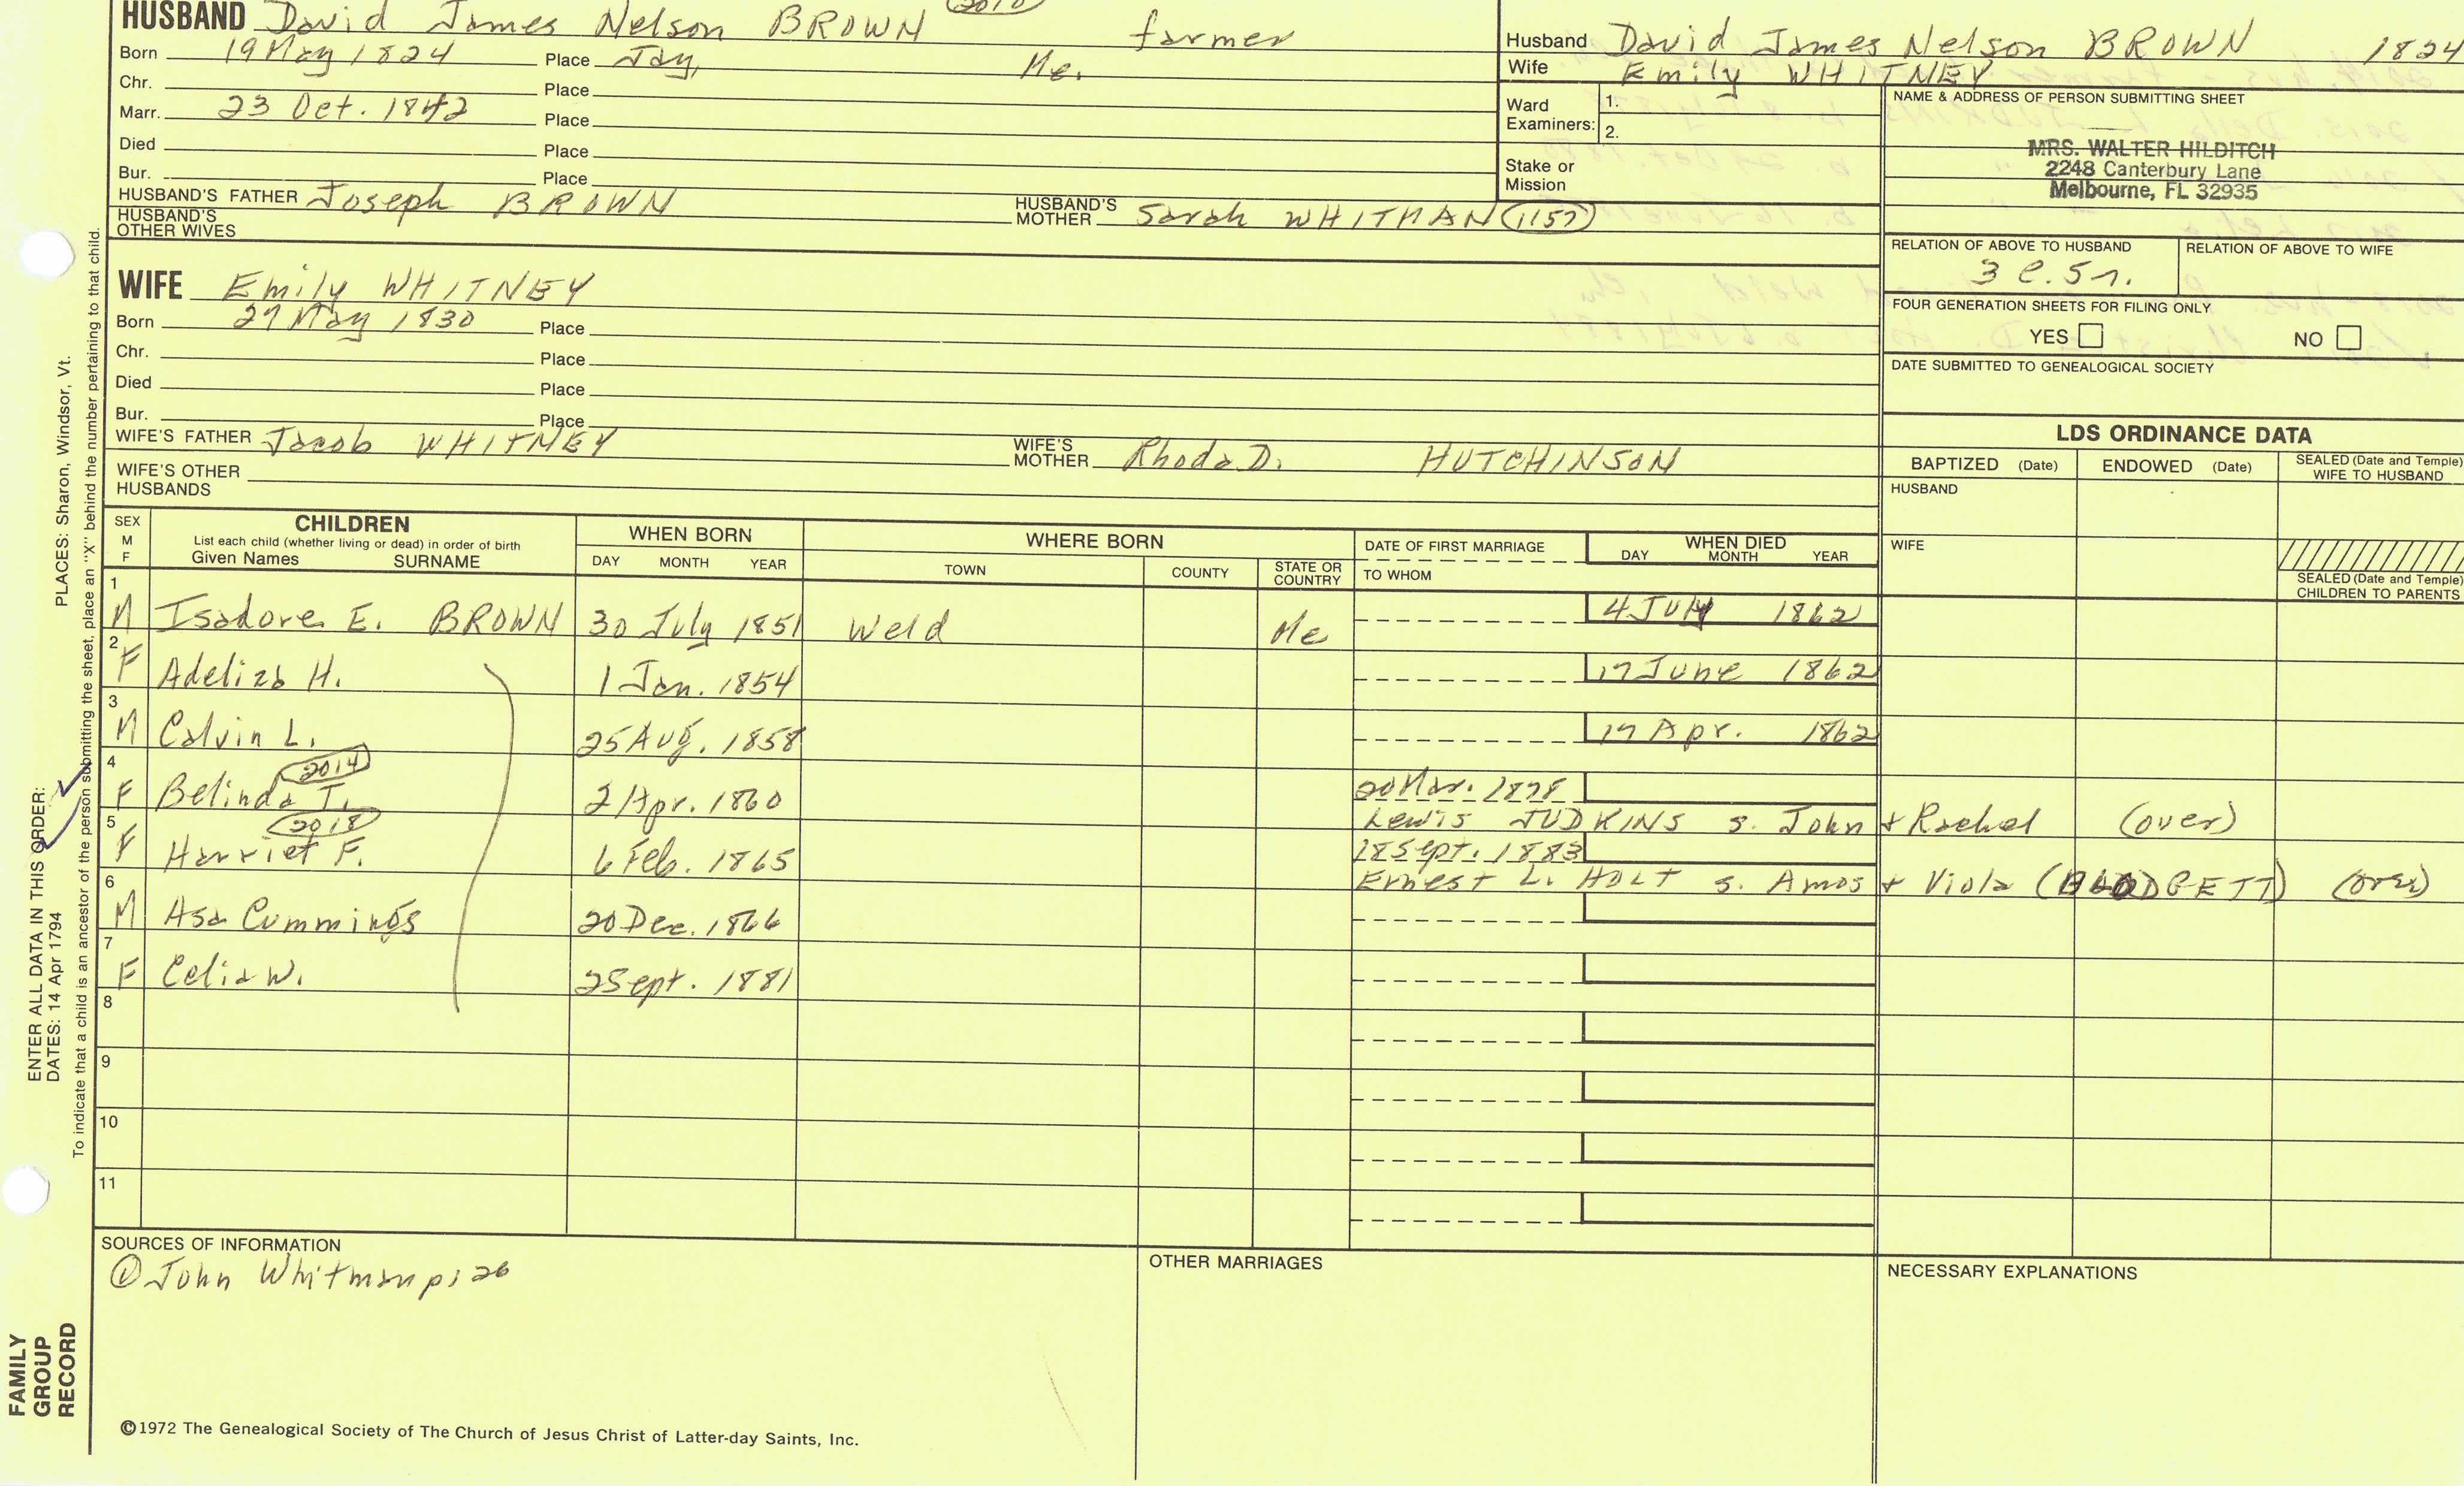 HUSBAND David James Nelson BROWN 2010 farmer
Born 19 May 1824 Place Jay, Me.
Chr. Place
Marr. 23 Oct. 1842 Place
Died Place
Bur. Place
HUSBAND'S FATHER Joseph BROWN HUSBAND'S MOTHER Sarah WHITMAN (1157)
HUSBAND'S OTHER WIVES
WIFE Emily WHITNEY
Born 27 May 1830 Place
Chr. Place
Died Place
Bur. Place
WIFE'S FATHER Jacob WHITNEY WIFE'S MOTHER Rhoda D. HUTCHINSON
WIFE'S OTHER HUSBANDS
Husband David James Nelson BROWN 1824
Wife Emily WHITNEY
Ward Examiners: 1.
2.
Stake or Mission
NAME & ADDRESS OF PERSON SUBMITTING SHEET
MRS. WALTER HILDITCH
2248 Canterbury Lane
Melbourne, FL 32935
RELATION OF ABOVE TO HUSBAND RELATION OF ABOVE TO WIFE
3 C. 5r.
FOUR GENERATION SHEETS FOR FILING ONLY
YES NO
DATE SUBMITTED TO GENEALOGICAL SOCIETY
LDS ORDINANCE DATA
BAPTIZED (Date) ENDOWED (Date) SEALED (Date and Temple) WIFE TO HUSBAND
HUSBAND
WIFE
SEALED (Date and Temple) CHILDREN TO PARENTS
SEX M F
CHILDREN
List each child (whether living or dead) in order of birth
Given Names SURNAME
WHEN BORN
DAY MONTH YEAR
WHERE BORN
TOWN COUNTY STATE OR COUNTRY
DATE OF FIRST MARRIAGE
TO WHOM
WHEN DIED
DAY MONTH YEAR
1 M Isadore E. BROWN 30 July 1851 Weld Me 4 July 1862
2 F Adeliza H. 1 Jan. 1854 17 June 1862
3 M Calvin L. 25 Aug. 1858 17 Apr. 1862
4 F Belinda T. 2014 2 Apr. 1860 20 Mar. 1878
Lewis JUDKINS s. John + Rachel (over)
5 F Harriet F. 2018 6 Feb. 1865 18 Sept. 1883
Ernest L. HOLT s. Amos + Viola (BLODGETT) (over)
6 M Asa Cummings 20 Dec. 1866
7 F Celia W. 2 Sept. 1881
8
9
10
11
SOURCES OF INFORMATION
① John Whitman p. 26
OTHER MARRIAGES
NECESSARY EXPLANATIONS
©1972 The Genealogical Society of The Church of Jesus Christ of Latter-day Saints, Inc.
ENTER ALL DATA IN THIS ORDER:
DATES: 14 Apr 1794 PLACES: Sharon, Windsor, Vt.
To indicate that a child is an ancestor of the person submitting the sheet, place an "X" behind the number pertaining to that child.
FAMILY
GROUP
RECORD